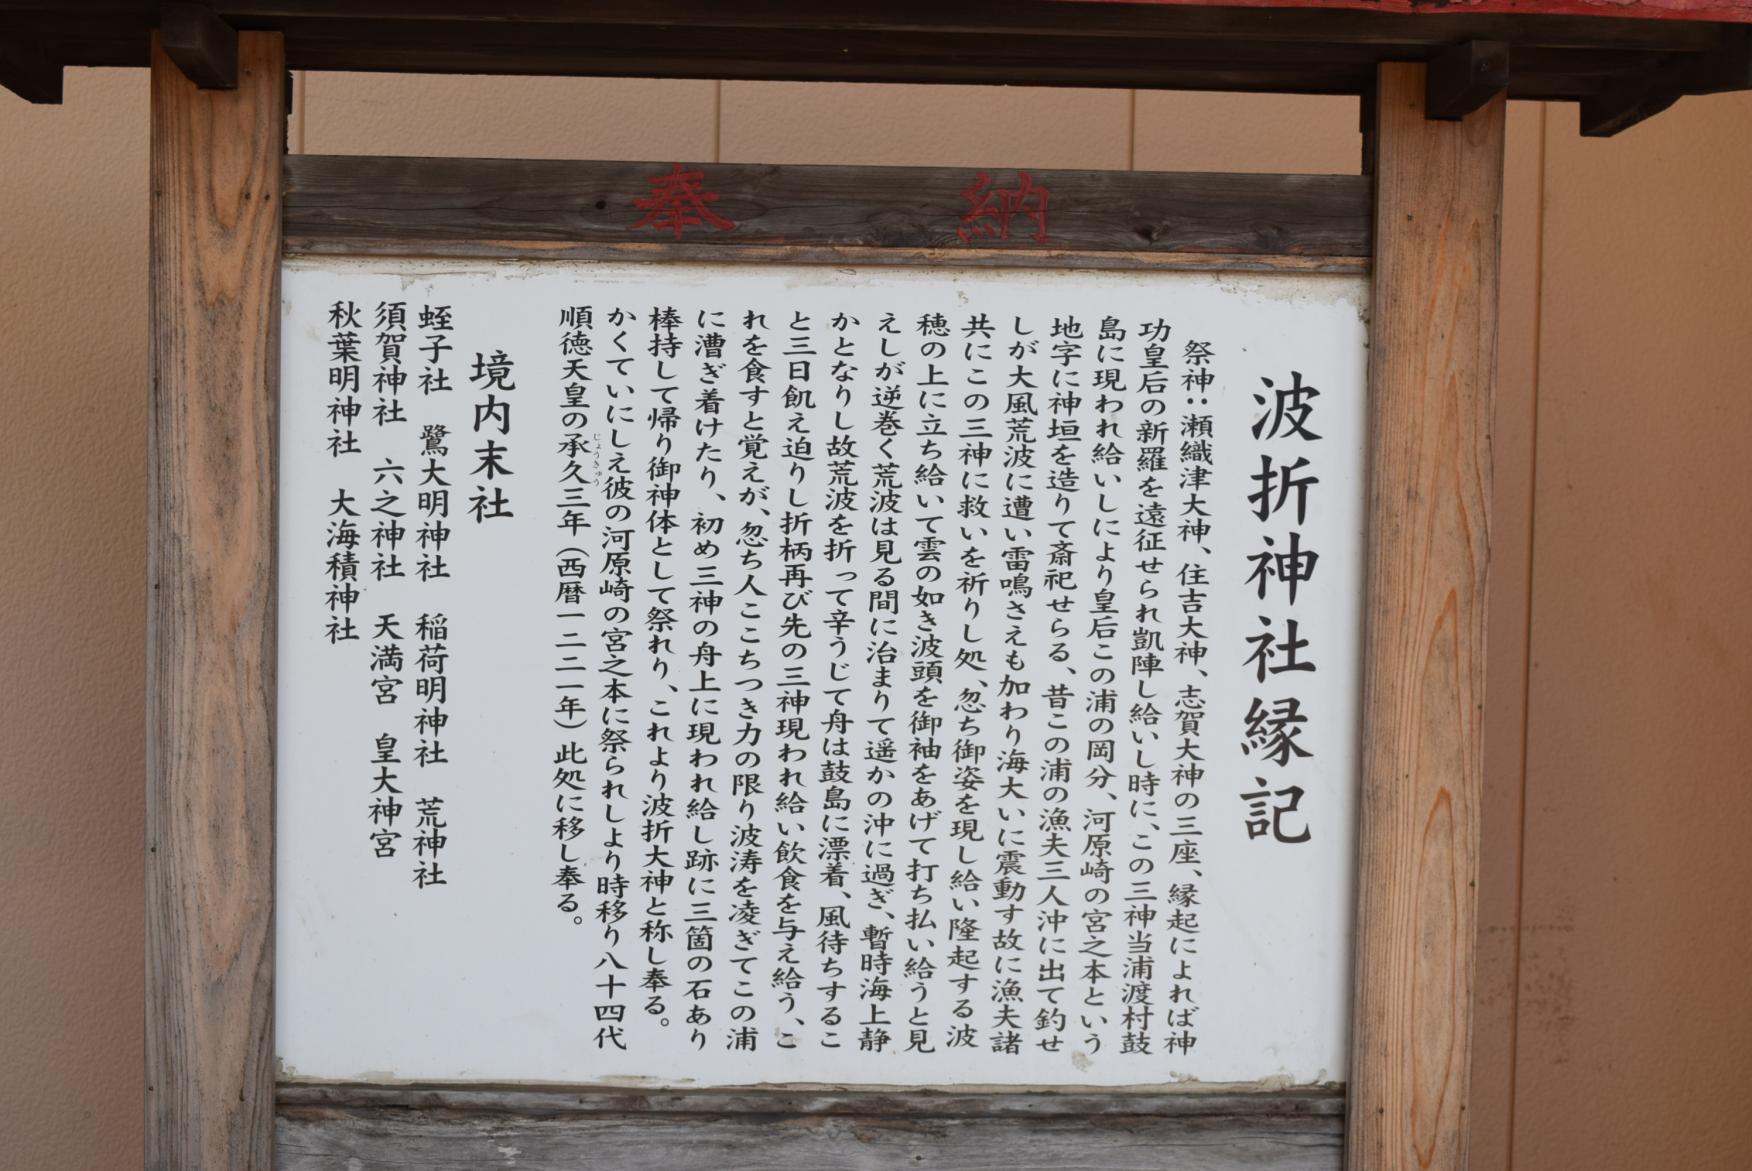 奉納
波折神社縁記
祭神：瀬織津大神、住吉大神、志賀大神の三座、縁起によれば神
功皇后の新羅を遠征せられ凱陣し給いし時に、この三神当浦渡村鼓
島に現われ給いしにより皇后この浦の岡分、河原崎の宮之本という
地字に神垣を造りて斎祀せらる、昔この浦の漁夫三人沖に出て釣せ
しが大風荒波に遭い雷鳴さえも加わり海大いに震動す故に漁夫諸
共にこの三神に救いを祈りし処、忽ち御姿を現し給い隆起する波
穂の上に立ち給いて雲の如き波頭を御袖をあげて打ち払い給うと見
えしが逆巻く荒波は見る間に治まりて遥かの沖に過ぎ、暫時海上静
かとなりし故荒波を折って辛うじて舟は鼓島に漂着、風待ちするこ
と三日飢え迫りし折柄再び先の三神現われ給い飲食を与え給う、こ
れを食すと覚えが、忽ち人ここちつき力の限り波涛を凌ぎてこの浦
に漕ぎ着けたり、初め三神の舟上に現われ給し跡に三箇の石あり
棒持して帰り御神体として祭れり、これより波折大神と称し奉る。
かくていにしえ彼の河原崎の宮之本に祭られしより時移り八十四代
順徳天皇の承久三年（西暦一二二一年）此処に移し奉る。
じょうきゅう
境内末社
蛭子社　鷺大明神社　稲荷明神社　荒神社
須賀神社　六之神社　天満宮　皇大神宮
秋葉明神社　大海積神社